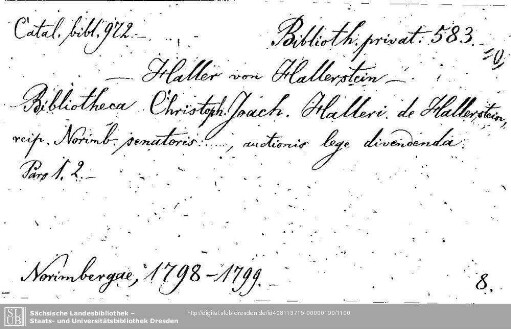 Catal. bibl. 972.—
Biblioth. privat. 583.
— Haller von Hallerstein —
Bibliotheca Christoph. Joach. Halleri de Hallerstein,
reip. Norimb. senatoris ....., auctionis lege divendenda.
Pars 1. 2.—
Norimbergae, 1798–1799.
8.
SLUB
Sächsische Landesbibliothek –
Staats- und Universitätsbibliothek Dresden